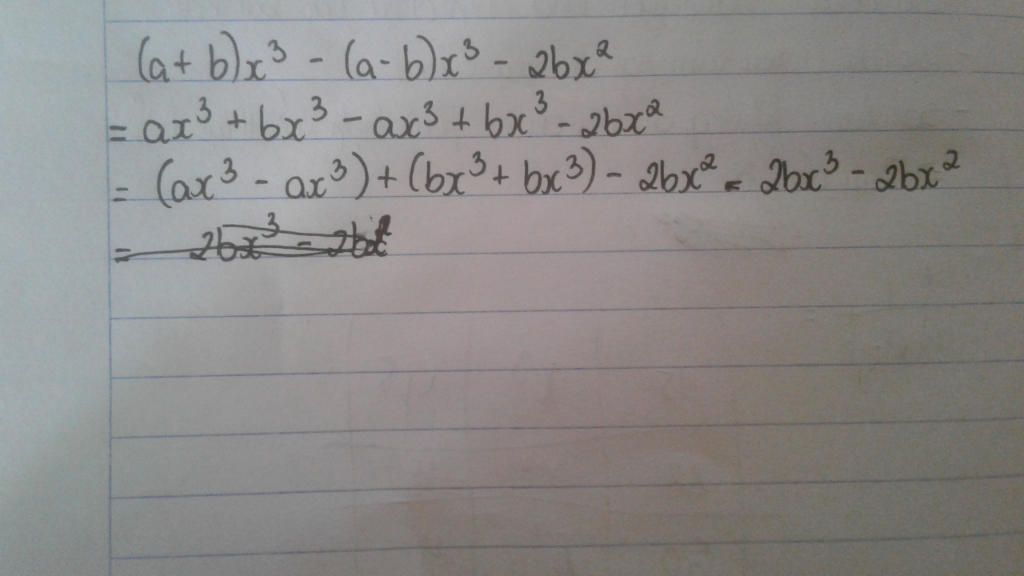 (a + b)x³ - (a - b)x³ - 2bx²
= ax³ + bx³ - ax³ + bx³ - 2bx²
= (ax³ - ax³) + (bx³ + bx³) - 2bx² = 2bx³ - 2bx²
= 2bx³ - 2bx²